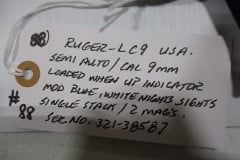 88
RUGER-LC9 USA.
SEMI AUTO/CAL 9MM
LOADED WHEN UP INDICATOR
MOD BLUE, WHITE NIGHTS SIGHTS
SINGLE STACK / 2 MAG'S.
SER.NO. 321-38587
#88